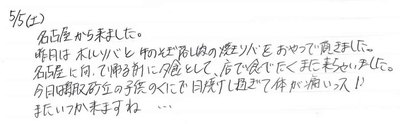 5/5(土)
名古屋から来ました。
昨日はホルソバと 焼ソバを おやつで頂きました。
名古屋に向って帰る前に夕食として、店で食べたくまた来ちゃいました。
今日は鳥取砂丘の子供のくにで日焼けし過ぎて体が痛いっス!!
またいつか来ますね …